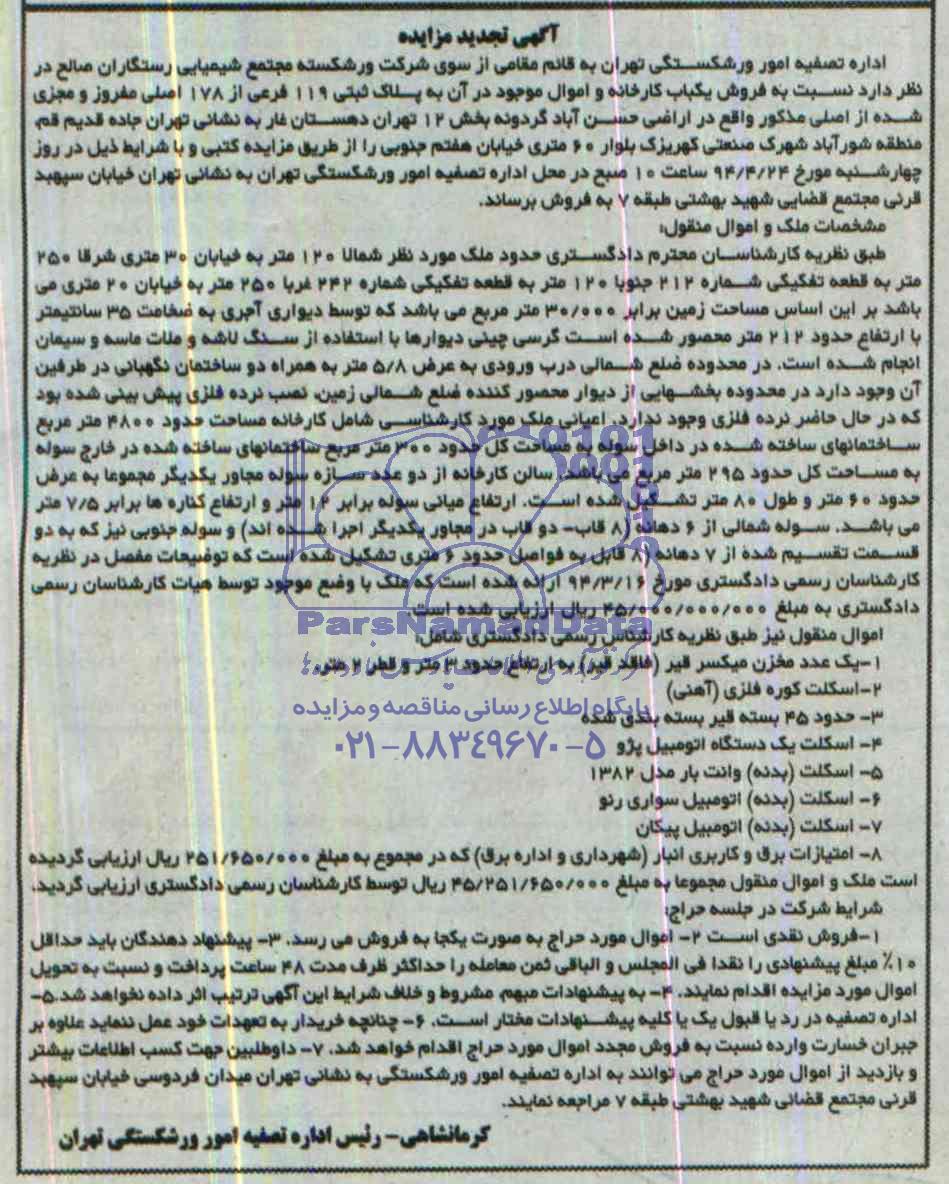 آگهی تجدید مزایده
اداره تصفیه امور ورشکستگی تهران به قائم مقامی از سوی شرکت ورشکسته مجتمع شیمیایی رستگاران صالح در
نظر دارد نسبت به فروش یکباب کارخانه و اموال موجود در آن به پلاک ثبتی ۱۱۹ فرعی از ۱۷۸ اصلی مفروز و مجزی
شده از اصلی مذکور واقع در اراضی حسن آباد گردونه بخش ۱۲ تهران دهستان غار به نشانی تهران جاده قدیم قم،
منطقه شورآباد شهرک صنعتی کهریزک بلوار ۶۰ متری خیابان هفتم جنوبی را از طریق مزایده کتبی و با شرایط ذیل در روز
چهارشنبه مورخ ۹۴/۴/۲۴ ساعت ۱۰ صبح در محل اداره تصفیه امور ورشکستگی تهران به نشانی تهران خیابان سپهبد
قرنی مجتمع قضایی شهید بهشتی طبقه ۷ به فروش برساند.
مشخصات ملک و اموال منقول:
طبق نظریه کارشناسان محترم دادگستری حدود ملک مورد نظر شمالا ۱۲۰ متر به خیابان ۳۰ متری شرقا ۲۵۰
متر به قطعه تفکیکی شماره ۲۱۲ جنوبا ۱۲۰ متر به قطعه تفکیکی شماره ۲۴۲ غربا ۲۵۰ متر به خیابان ۲۰ متری می
باشد بر این اساس مساحت زمین برابر ۳۰/۰۰۰ متر مربع می باشد که توسط دیواری آجری به ضخامت ۳۵ سانتیمتر
با ارتفاع حدود ۲۱۲ متر محصور شده است گرسی چینی دیوارها با استفاده از سنگ لاشه و ملات ماسه و سیمان
انجام شده است. در محدوده ضلع شمالی درب ورودی به عرض ۵/۸ متر به همراه دو ساختمان نگهبانی در طرفین
آن وجود دارد در محدوده بخشهایی از دیوار محصور کننده ضلع شمالی زمین، نصب نرده فلزی پیش بینی شده بود
که در حال حاضر نرده فلزی وجود ندارد. اعیانی ملک مورد کارشناسی شامل کارخانه مساحت حدود ۴۸۰۰ متر مربع
ساختمانهای ساخته شده در داخل سوله به مساحت کل حدود ۳۰۰ متر مربع ساختمانهای ساخته شده در خارج سوله
به مساحت کل حدود ۲۹۵ متر مربع می باشد. سالن کارخانه از دو عدد سازه سوله مجاور یکدیگر مجموعا به عرض
حدود ۶۰ متر و طول ۸۰ متر تشکیل شده است. ارتفاع میانی سوله برابر ۱۲ متر و ارتفاع کناره ها برابر ۷/۵ متر
می باشد. سوله شمالی از ۶ دهانه (۸ قاب- دو قاب در مجاور یکدیگر اجرا شده اند) و سوله جنوبی نیز که به دو
قسمت تقسیم شده از ۷ دهانه (۸ قابل به فواصل حدود ۶ متری تشکیل شده است که توضیحات مفصل در نظریه
کارشناسان رسمی دادگستری مورخ ۹۴/۳/۱۶ ارائه شده است که ملک با وضع موجود توسط هیات کارشناسان رسمی
دادگستری به مبلغ ۴۵/۰۰۰/۰۰۰/۰۰۰ ریال ارزیابی شده است.
اموال منقول نیز طبق نظریه کارشناس رسمی دادگستری شامل:
۱-یک عدد مخزن میکسر قیر (فاقد قیر) به ارتفاع حدود ۳ متر و قطر ۲ متر.
۲-اسکلت کوره فلزی (آهنی)
۳- حدود ۴۵ بسته قیر بسته بندی شده
۴- اسکلت یک دستگاه اتومبیل پژو
۵- اسکلت (بدنه) وانت بار مدل ۱۳۸۲
۶- اسکلت (بدنه) اتومبیل سواری رنو
۷- اسکلت (بدنه) اتومبیل پیکان
۸- امتیازات برق و کاربری انبار (شهرداری و اداره برق) که در مجموع به مبلغ ۲۵۱/۶۵۰/۰۰۰ ریال ارزیابی گردیده
است ملک و اموال منقول مجموعا به مبلغ ۴۵/۲۵۱/۶۵۰/۰۰۰ ریال توسط کارشناسان رسمی دادگستری ارزیابی گردید.
شرایط شرکت در جلسه حراج:
۱-فروش نقدی است ۲- اموال مورد حراج به صورت یکجا به فروش می رسد. ۳- پیشنهاد دهندگان باید حداقل
۱۰٪ مبلغ پیشنهادی را نقدا فی المجلس و الباقی ثمن معامله را حداکثر ظرف مدت ۴۸ ساعت پرداخت و نسبت به تحویل
اموال مورد مزایده اقدام نمایند. ۴- به پیشنهادات مبهم، مشروط و خلاف شرایط این آگهی ترتیب اثر داده نخواهد شد.۵-
اداره تصفیه در رد یا قبول یک یا کلیه پیشنهادات مختار است. ۶- چنانچه خریدار به تعهدات خود عمل ننماید علاوه بر
جبران خسارت وارده نسبت به فروش مجدد اموال مورد حراج اقدام خواهد شد. ۷- داوطلبین جهت کسب اطلاعات بیشتر
و بازدید از اموال مورد حراج می توانند به اداره تصفیه امور ورشکستگی به نشانی تهران میدان فردوسی خیابان سپهبد
قرنی مجتمع قضائی شهید بهشتی طبقه ۷ مراجعه نمایند.
کرمانشاهی- رئیس اداره تصفیه امور ورشکستگی تهران
ParsNamadData
پایگاه اطلاع رسانی مناقصه و مزایده
۰۲۱-۸۸۳۴۹۶۷۰-۵